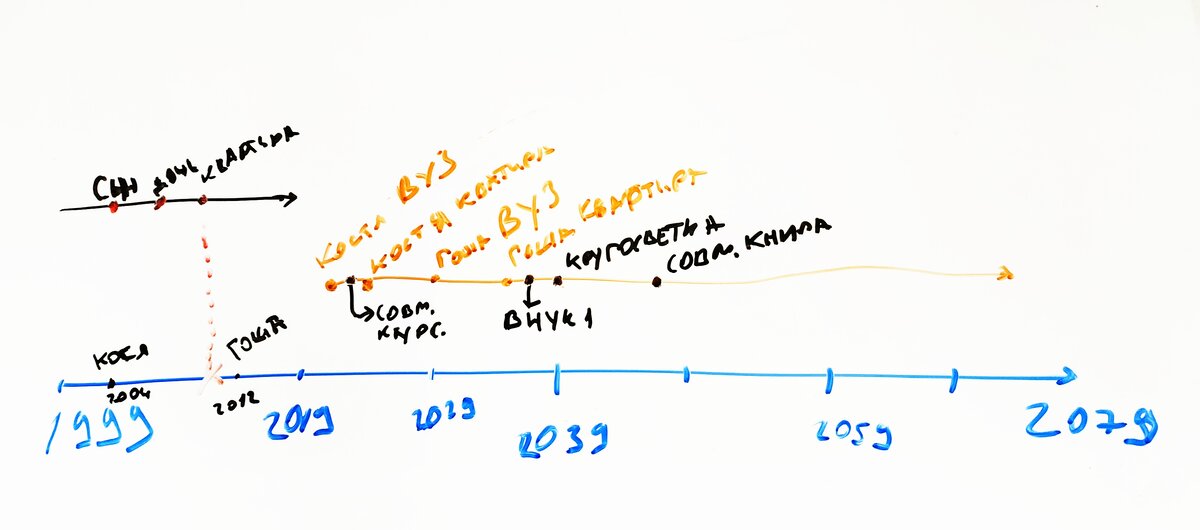 СЫН
ДОЧЬ
КВАРТИРА
КОСТЯ ВУЗ
КОСТЯ КВАТИРА
ГОША ВУЗ
ГОША КВАРТИРА
КРУГОСВЕТКА
СОВМ. КНИГА
СОВМ.
КУРС.
ВНУК 1
КОСЯ
ГОША
2004
2012
1999
2019
2029
2039
2059
2079